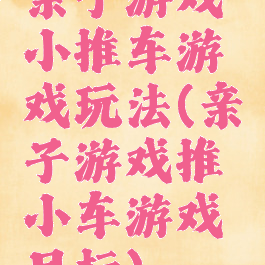 亲子游戏
小推车游
戏玩法(亲
子游戏推
小车游戏
目标)